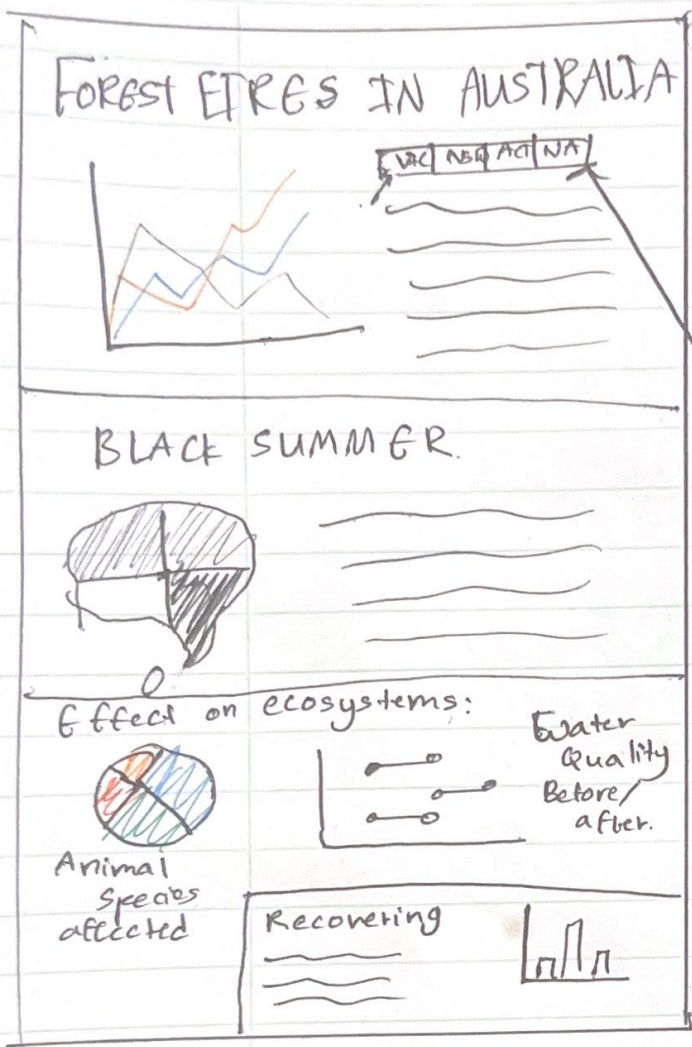 FOREST FIRES IN AUSTRALIA
VIC NSW ACT NA
BLACK SUMMER.
Effect on ecosystems:
Water
Quality
Before/
after.
Animal
Species
affected
Recovering